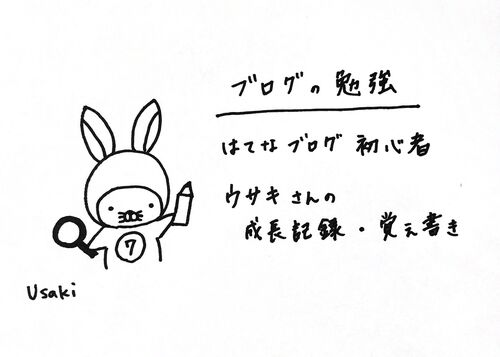 ブログの勉強
はてなブログ 初心者
ウサキさんの
成長記録・覚え書き
7
Usaki